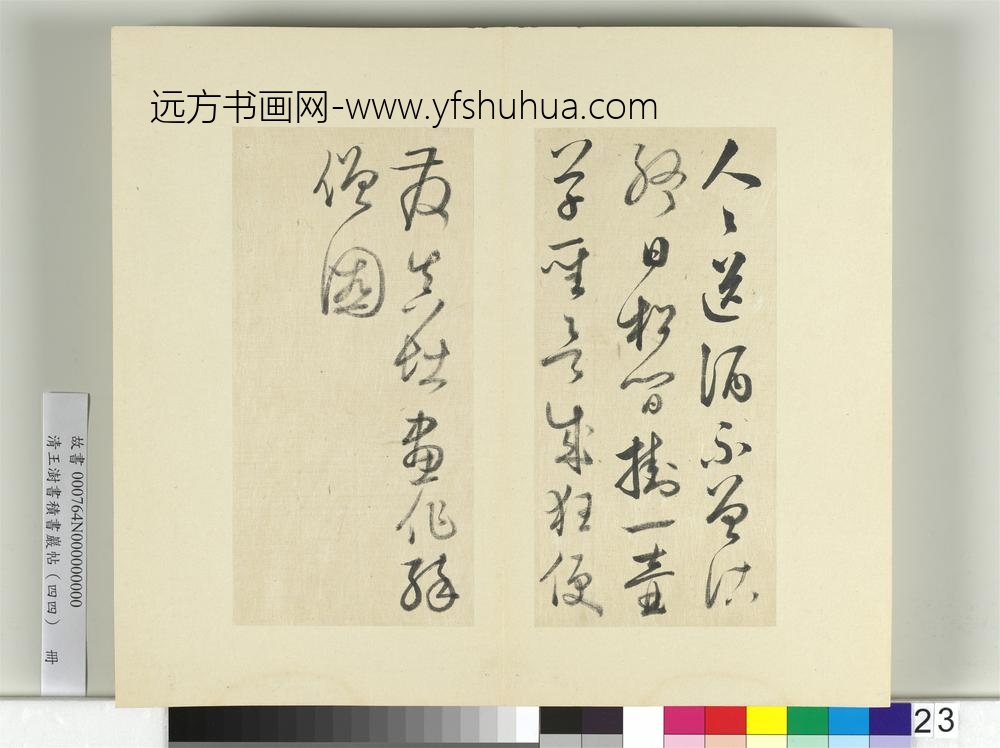 远方书画网-www.yfshuhua.com
人〻送酒不曾沽
終日松間掛一壺
草聖欲成狂便
發真堪畫作醉
僧圖
故書 000764N000000000
清王澍書積書巖帖(四四) 冊
23